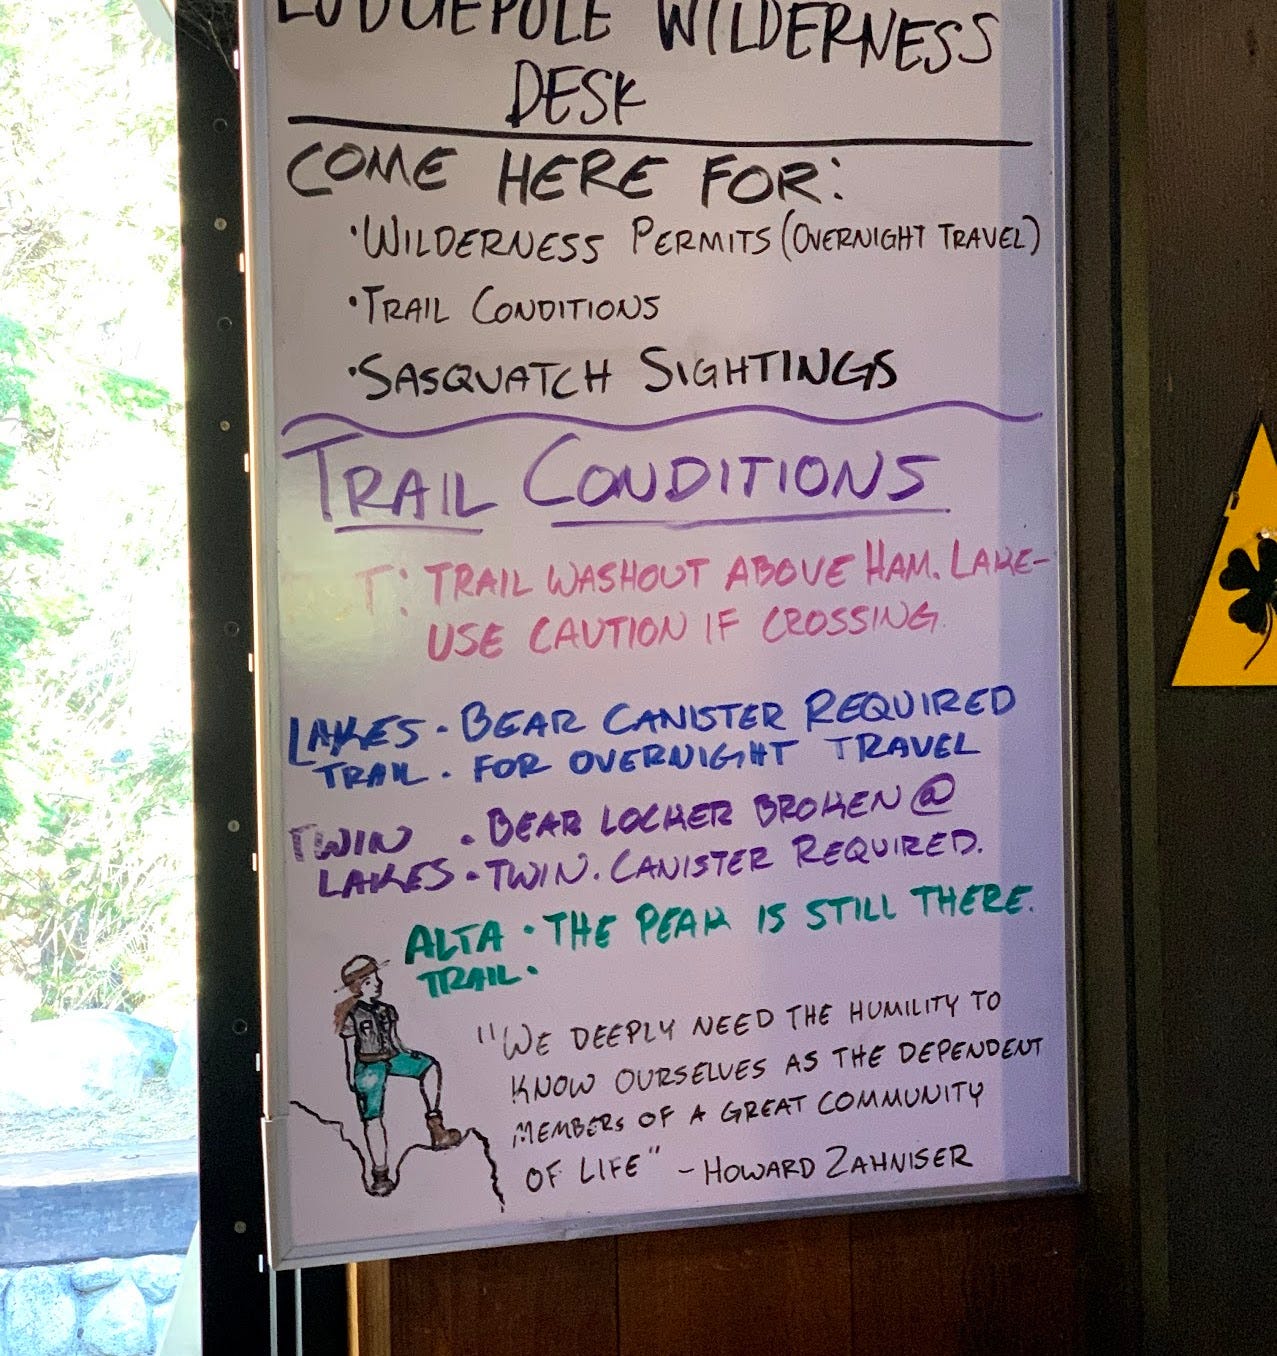 LODGEPOLE WILDERNESS
DESK
COME HERE FOR:
• WILDERNESS PERMITS (OVERNIGHT TRAVEL)
• TRAIL CONDITIONS
• SASQUATCH SIGHTINGS
TRAIL CONDITIONS
T: TRAIL WASHOUT ABOVE HAM. LAKE-
USE CAUTION IF CROSSING.
LAKES • BEAR CANISTER REQUIRED
TRAIL • FOR OVERNIGHT TRAVEL
TWIN • BEAR LOCKER BROKEN @
LAKES • TWIN. CANISTER REQUIRED.
ALTA • THE PEAK IS STILL THERE.
TRAIL •
"WE DEEPLY NEED THE HUMILITY TO
KNOW OURSELVES AS THE DEPENDENT
MEMBERS OF A GREAT COMMUNITY
OF LIFE" - HOWARD ZAHNISER